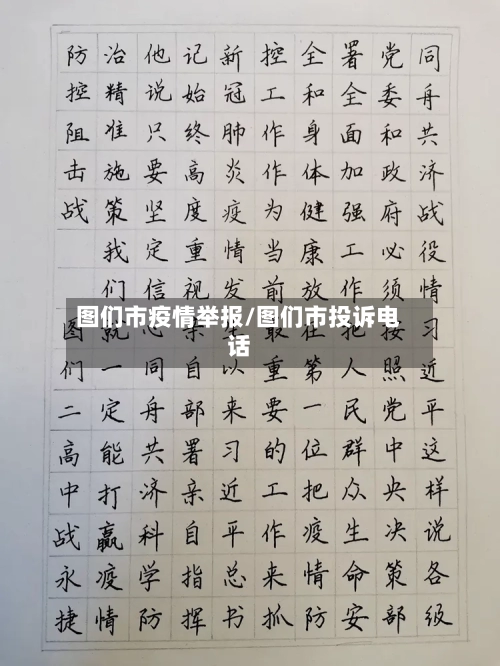 同舟共济战役情习近平这样说各级
党委和政府必须按照党中央决策部
署全面加强工作把人民群众生命安
全和身体健康放在第一位把疫情防
控工作作为当前最重要的工作来抓
新冠肺炎疫情发生以来习近平总书
记始终高度重视亲自部署亲自指挥
他说只要坚定信心同舟共济科学防
治精准施策我们就一定能打赢疫情
防控阻击战 图们二高中战永捷
图们市疫情举报/图们市投诉电
话